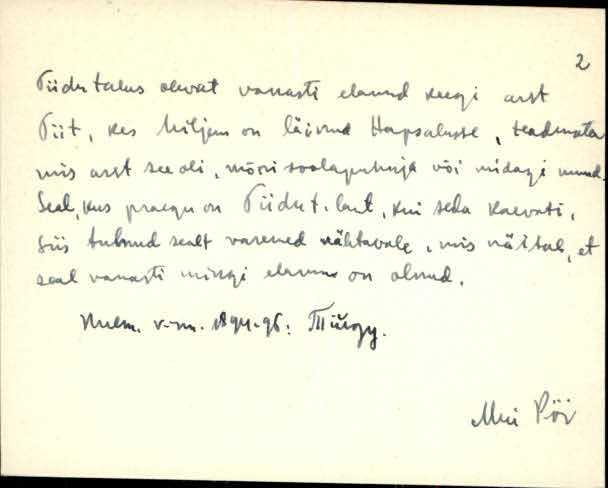 2
Tiidu talus olevat vanasti elanud keegi arst
Tiit, kes hiljem on läinud Hapsalusse, teadmata
mis arst see oli, mõni soolapuhuja või midagi muud.
Seal, kus praegu on Tiidu t. laut, kui seda kaevati,
siis tulnud sealt varemed nähtavale, mis näitab, et
seal vanasti mingi elamu on olnud.
v.-m. 1894-96: Тійду.